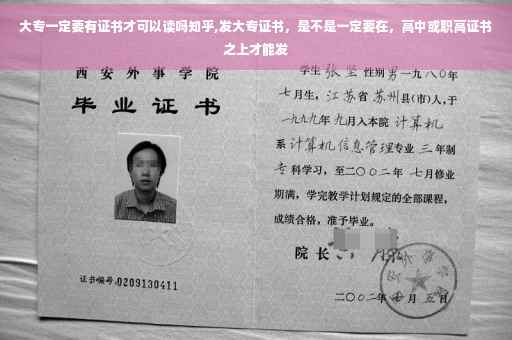 大专一定要有证书才可以读吗知乎,发大专证书，是不是一定要在，高中或职高证书
之上才能发
西安外事学院
毕业证书
证书编号:0209130411
学生 张坚 性别男一九八〇年
七月生，江苏省苏州县(市)人,于
一九九九年九月入本院 计算机
系计算机信息管理专业 三年制
专科学习，至二〇〇二年 七月修业
期满，学完教学计划规定的全部课程，
成绩合格，准予毕业。
院长
二〇〇二年 月五日